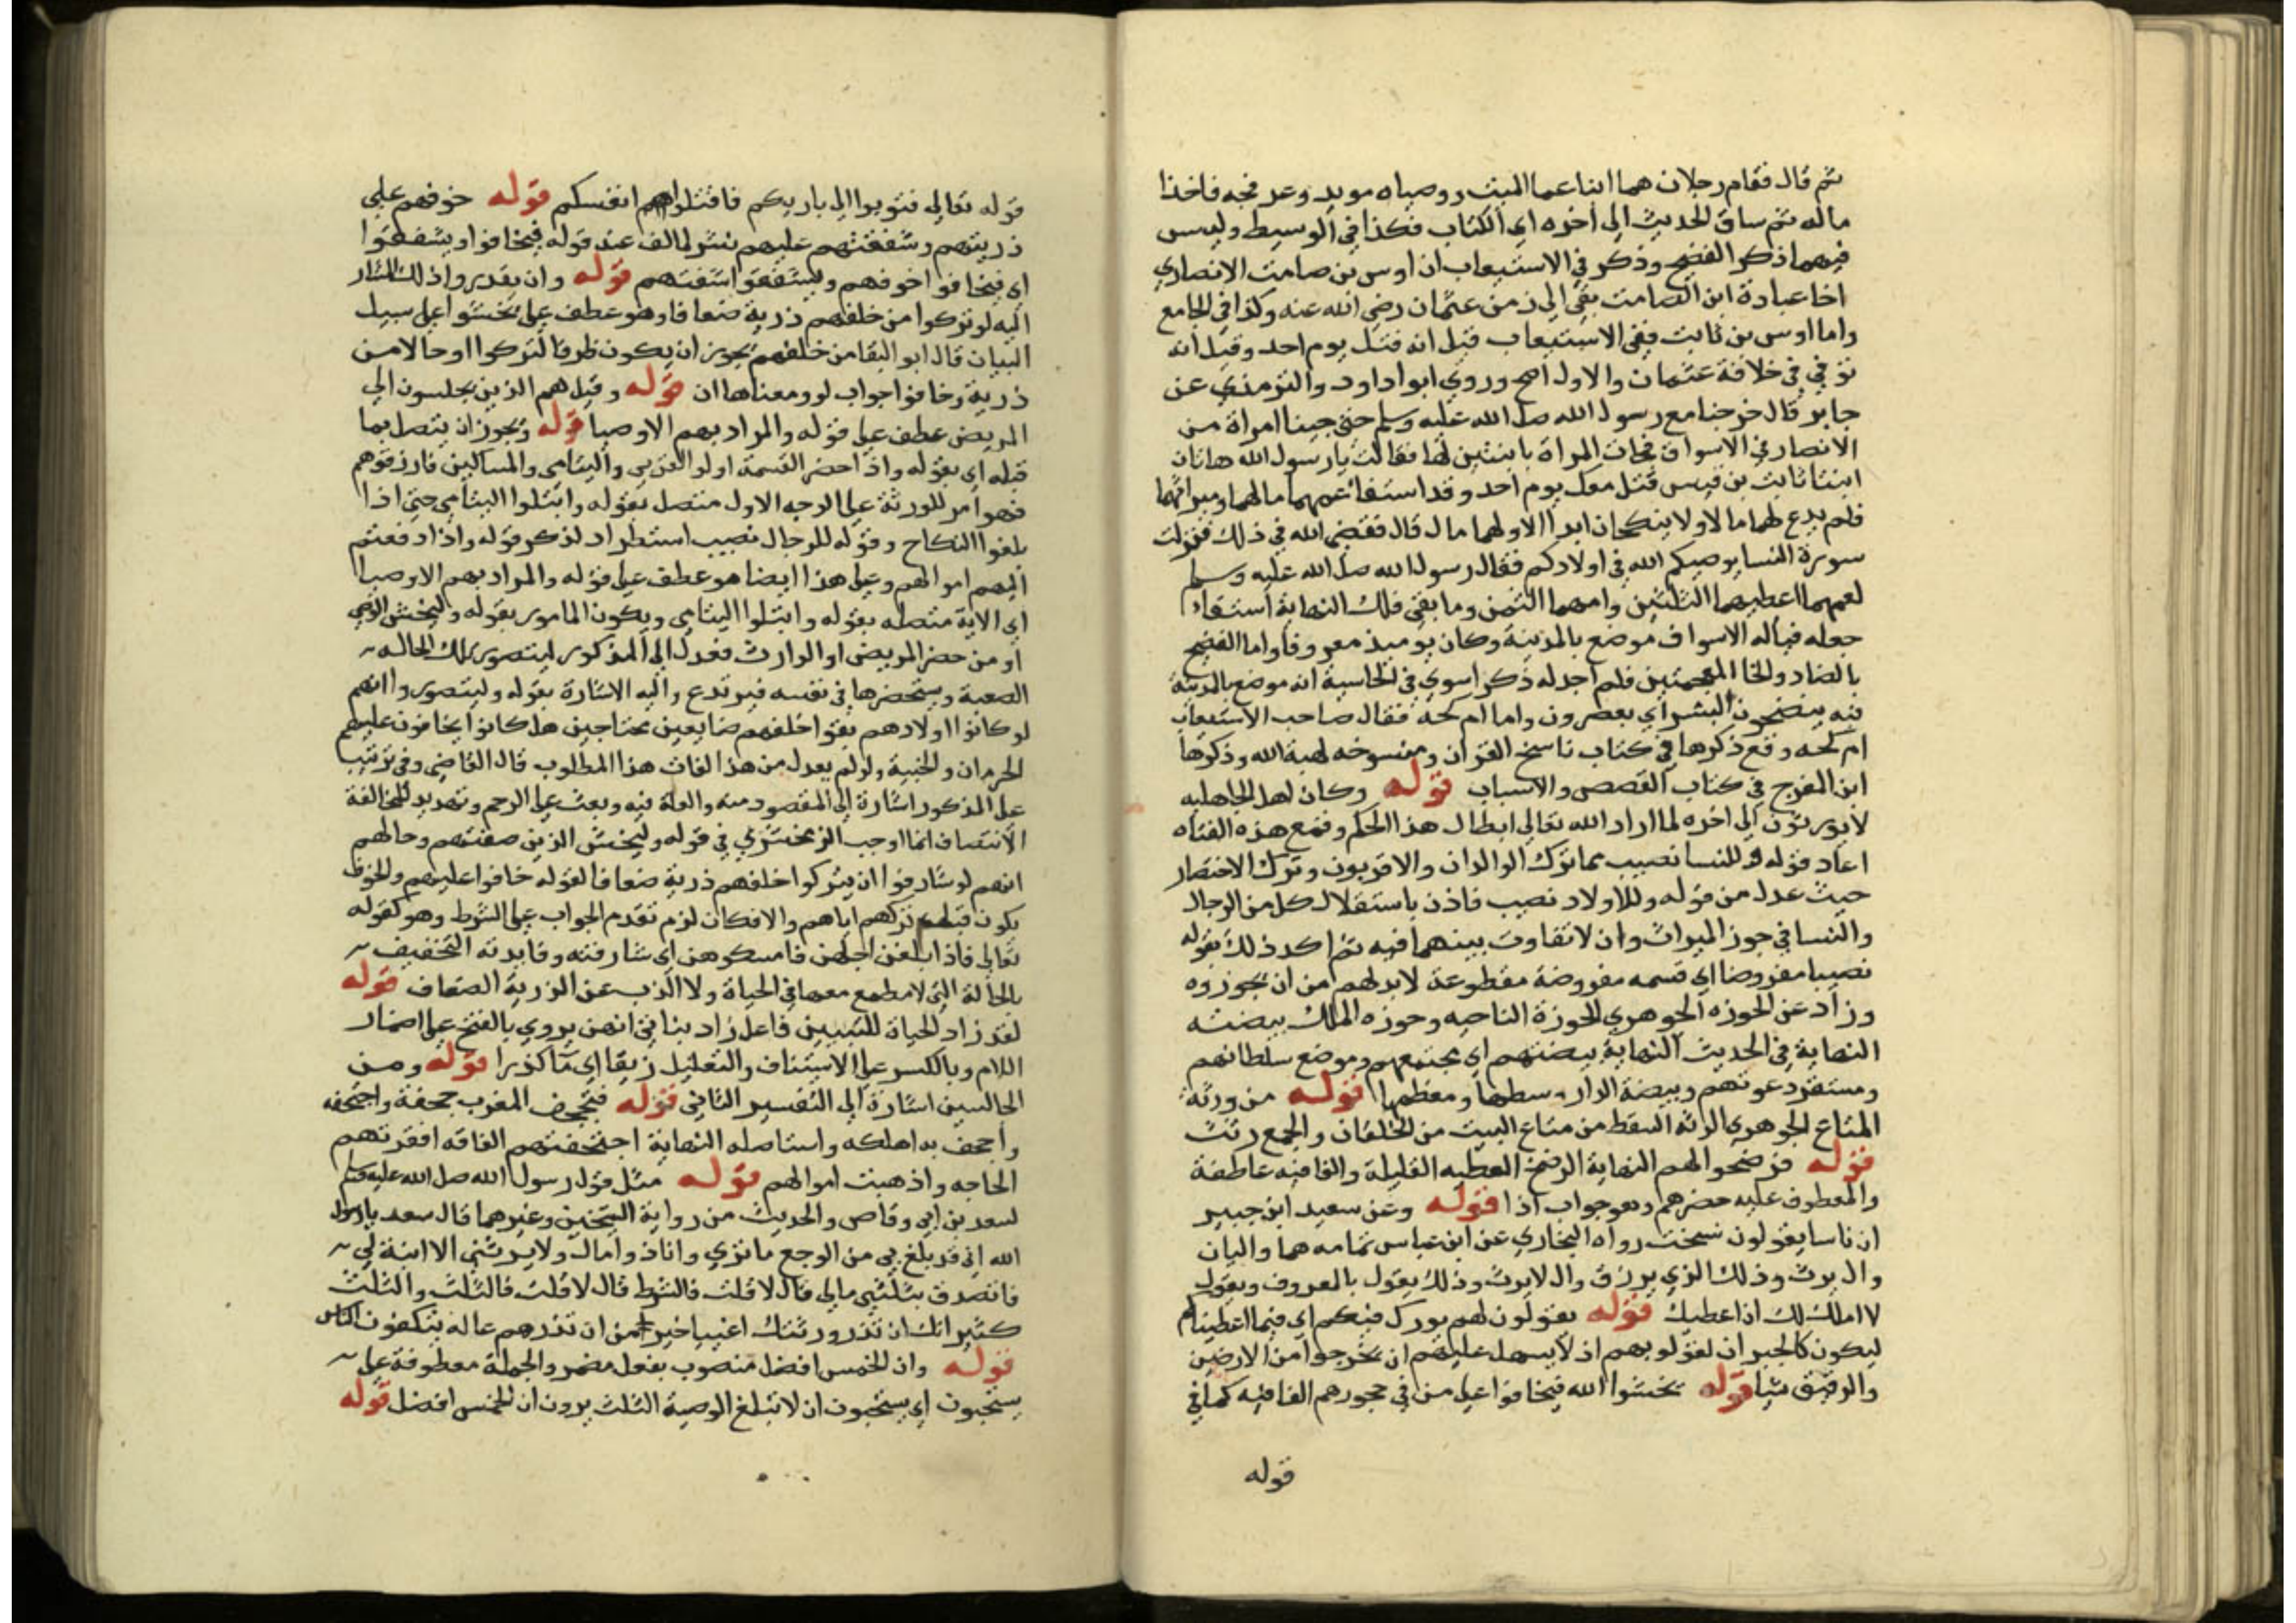 ثم قال فقام رجلان هما ابنا عما الميت ووصياه سويد وعرفجه فاخذا
ماله ثم ساق الحديث الى اخره اي الكتاب فكذا في الوسيط وليس
فيهما ذكر الفضيخ وذكر في الاستيعاب ان اوس بن صامت الانصاري
اخا عبادة ابن الصامت بقي الي زمن عثمان رضي الله عنه وكذا في الجامع
واما اوس بن ثابت ففي الاستيعاب قيل انه قتل يوم احد وقيل انه
توفي في خلافة عثمان والاول اصح وروي ابوا داود والترمذي عن
جابر قال خرجنا مع رسول الله صلى الله عليه وسلم حتى جينا امراة من
الانصار في الاسواق فجات المراة بابنتين لها فقالت يا رسول الله هاتان
ابنتا ثابت بن قيس قتل معك يوم احد وقد استفا عمهما مالهما وميراثهما
فلم يدع لهما مالا ولا ينكحان ابدا الا ولهما مال قال فقضى الله في ذلك فنزلت
سورة النسا يوصيكم الله في اولادكم فقال رسول الله صلى الله عليه وسلم
لعمهما اعطهما الثلثين وامهما الثمن وما بقي فلك النهاية استفاء
جعله فياله الاسواف موضع بالمدينة وكان يوميذ معروفا واما الفضيخ
بالضاد والخا المعجمتين فلم اجد له ذكرا سوي في الحاشية انه موضع بالمدينة
فيه يفضخون البسر اي يعصرون واما ام كحه فقال صاحب الاستيعاب
ام كحه وقع ذكرها في كتاب ناسخ القران ومنسوخه لهبة الله وذكرها
ابن الفرج في كتاب القصص والاسباب قوله وكان اهل الجاهليه
لا يورثون الى اخره لما اراد الله تعالى ابطال هذا الحكم وقمع هذه
اعاد قوله وللنسا نصيب مما ترك الوالدان والاقربون وترك الاختصار
حيث عدل من قوله وللاولاد نصيب فاذن باستقلال كل من الرجال
والنسا في حوز الميراث وان لا تفاوت بينهما فيه ثم اكد ذلك بقوله
نصيبا مفروضا اي قسمه مفروضة مقطوعة لا بد لهم من ان يحوزوه
وزاد عن الحوزه الجوهري الحوزة الناحيه وحوزه الملك بيضته
النهاية في الحديث النهاية بيضتهم اي مجتمعهم وموضع سلطانهم
ومستقر دعوتهم وبيضة الدار وسطها ومعظمها قوله من ورثة
المتاع الجوهري الرثه السقط من متاع البيت من الخلقان والجمع رثث
قوله فرضخوا لهم النهاية الرضخ العطيه القليلة والفا فيه عاطفة
والمعطوف عليه حضرهم وهو جواب اذا قوله وعن سعيد ابن جبير
ان ناسا يقولون نسخت رواه البخاري عن ابن عباس تمامه هما واليان
وال يرث وذلك الذي يرزق وال لا يرث وذلك يقول بالمعروف ويقول
لا املك لك ان اعطيك قوله يقولون لهم بورك فيكم اي فيما اعطيناكم
ليكون كالجبران لقلوبهم اذ لا يسهل عليهم ان يخرجوا من الارضين
والرقيق شيا قوله يخشوا الله فيخافوا على من في حجورهم الفا فيه كما في
قوله
قوله تعالى فتوبوا الى باريكم فاقتلوا انفسكم قوله خوفهم على
ذريتهم وشفقتهم عليهم نشر لما لف عند قوله فيخافوا ويشفقوا
اي فيخافوا خوفهم ويشفقوا شفقتهم قوله وان يقدروا ذلك المشار
اليه لو تركوا من خلفهم ذرية ضعافا وهو عطف على يخشوا على سبيل
البيان قال ابو البقا من خلفهم يجوز ان يكون ظرفا لتركوا او حالا من
ذرية وخافوا جواب لو ومعناها ان قوله وقيل هم الذين يجلسون الي
المريض عطف على قوله والمراد بهم الاوصيا قوله ويجوز ان يتصل بما
قبله اي بقوله واذا حضر القسمة اولوا القربي واليتامى والمساكين فارزقوهم
فهو امر للورثة على الوجه الاول متصل بقوله وابتلوا اليتامي حتى اذا
بلغوا النكاح وقوله للرجال نصيب استطراد لذكر قوله واذا دفعتم
اليهم اموالهم وعلى هذا ايضا هو عطف على قوله والمراد بهم الاوصيا
اي الاية متصله بقوله وابتلوا اليتامى ويكون المامور بقوله وليخش الوصي
او من حضر المريض او الوارث فعدل الى المذكور ليتصور تلك الحاله
الصعبة ويستحضرها في نفسه فيرتدع واليه الاشارة بقوله وليتصوروا انهم
لو كانوا اولادهم بقوا خلفهم ضايعين محتاجين هل كانوا يخافون عليهم
الحرمان والخيبة ولو لم يعدل من هذا لفات هذا المطلوب قال القاضي وفي ترتيب
على المذكور اشارة الى المقصود منه والعلة فيه وبعث على الرحم وتهديد للمخالفة
الانتصاف انما اوجب الزمخشري في قوله وليخش الذين صفتهم وحالهم
انهم لو شارفوا ان يتركوا خلفهم ذرية ضعافا لقوله خافوا عليهم والخوف
يكون قبل تركهم اياهم والا فكان لزم تقدم الجواب على الشرط وهو كقوله
تعالى فاذا بلغن اجلهن فامسكوهن اي شارفنه وفايدته التخفيف
بالحالة التي لا مطمع معها في الحياة ولا الذب عن الذرية الضعاف قوله
لقد زاد الحياة للتبيين فاعل زاد بناتي انهن يروي بالفتح على اضمار
اللام وبالكسر على الاستيناف والتعليل رنقا اي ما كدرا قوله ومن
الجالسين اشارة الى التفسير الثاني قوله فتجحف المغرب جحفة واجتحفه
واجحف به اهلكه واستاصله النهاية اجتحفتهم الفاقه افقرتهم
الحاجه واذهبت اموالهم قوله مثل قول رسول الله صلى الله عليه وسلم
لسعد بن ابي وقاص والحديث من رواية الشيخين وغيرهما قال سعد يا رسول
الله اني قد بلغ بي من الوجع ما تري وانا ذو مال ولا يرثني الا ابنة لي
فاتصدق بثلثي مالي قال لا قلت فالشطر قال لا قلت فالثلث والثلث
كثير انك ان تذر ورثتك اغنيا خير من ان تذرهم عاله يتكففون الناس
قوله وان الخمس افضل منصوب بفعل مضمر والجملة معطوفة على
يستحبون اي يستحبون ان لا تبلغ الوصية الثلث يرون ان الخمس افضل قوله